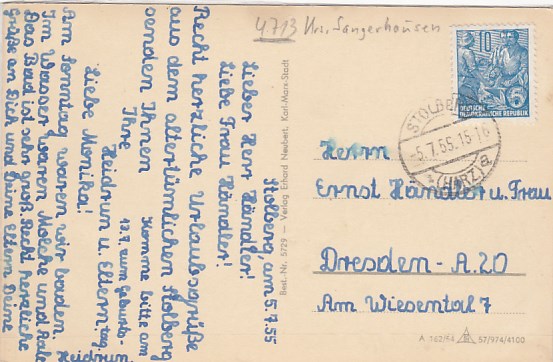 4713 Krs. Sangerhausen
Stolberg, am 5.7.55
Lieber Herr Händler!
Liebe Frau Händler!
Recht herzliche Urlaubsgrüße
aus dem altertümlichen Stolberg
senden Ihnen
Ihre
Heidrun u. Eltern.
Komme bitte am
12.7. zum Geburts-
tag
Liebe Monika!
Am Sonntag waren wir baden
Im Wasser waren Molche und
Das Bad ist sehr groß. Recht herzliche
Grüße an Dich und Deine Eltern Deine
Heidrun
Best.-Nr. 5729 – Verlag Erhard Neubert, Karl-Marx-Stadt
10
DEUTSCHE
DEMOKRATISCHE REPUBLIK
STOLBERG
-5.7.55.15-16
(HARZ) a
Herrn
Ernst Händler u. Frau
Dresden - A. 20
Am Wiesental 7
A 162/54 57/974/4100